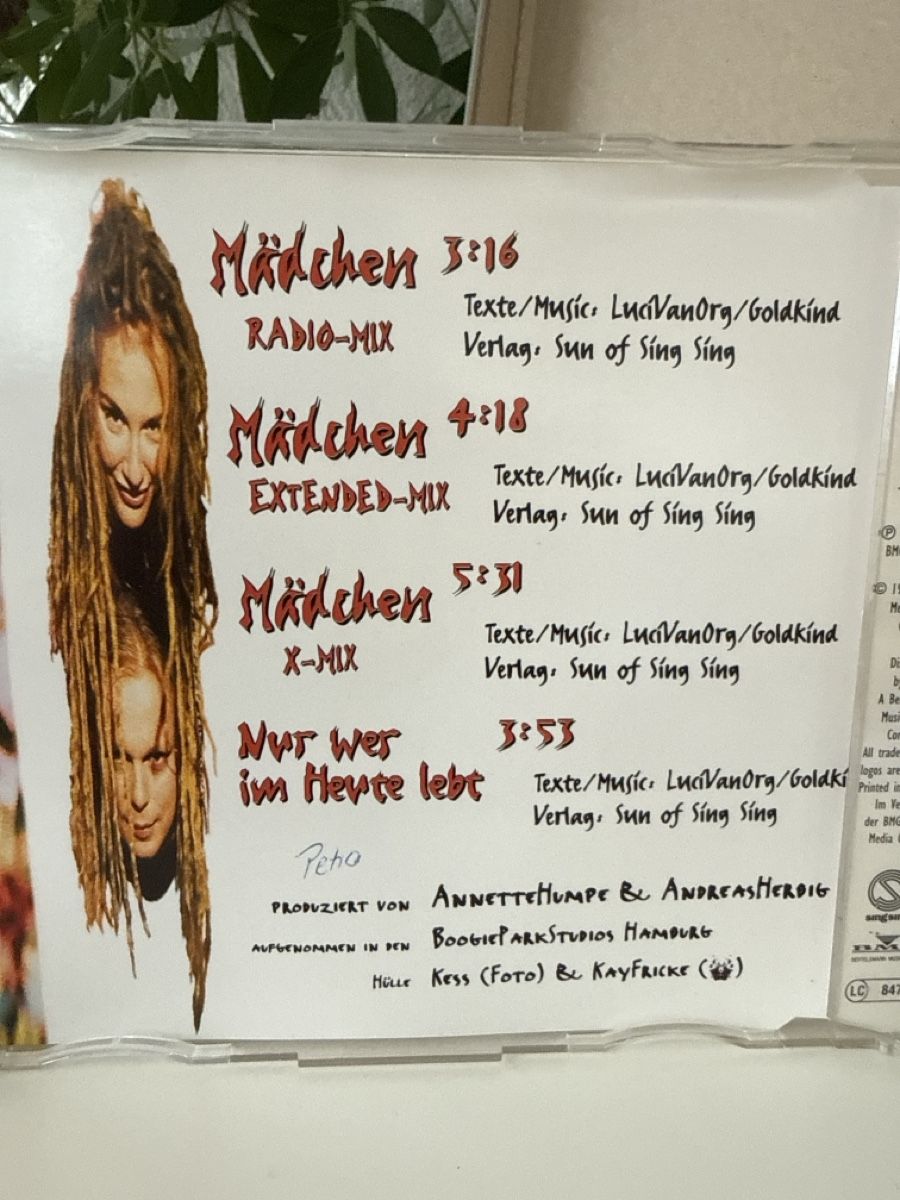 Mädchen 3:16
RADIO-MIX
Texte/Music: LuciVanOrg/Goldkind
Verlag: Sun of Sing Sing
Mädchen 4:18
EXTENDED-MIX
Texte/Music: LuciVanOrg/Goldkind
Verlag: Sun of Sing Sing
Mädchen 5:31
X-MIX
Texte/Music: LuciVanOrg/Goldkind
Verlag: Sun of Sing Sing
Nur wer 3:53
im Heute lebt
Texte/Music: LuciVanOrg/Goldki
Verlag: Sun of Sing Sing
PRODUZIERT VON ANNETTEHUMPE & ANDREASHERBIG
AUFGENOMMEN IN DEN BOOGIEPARKSTUDIOS HAMBURG
HÜLLE KESS (FOTO) & KAYFRICKE ( )
℗
BM
© 19
Me
Di
by
A Be
Musi
Co
All trade
logos are
Printed in
Im Ve
der BMG
Media
LC 847